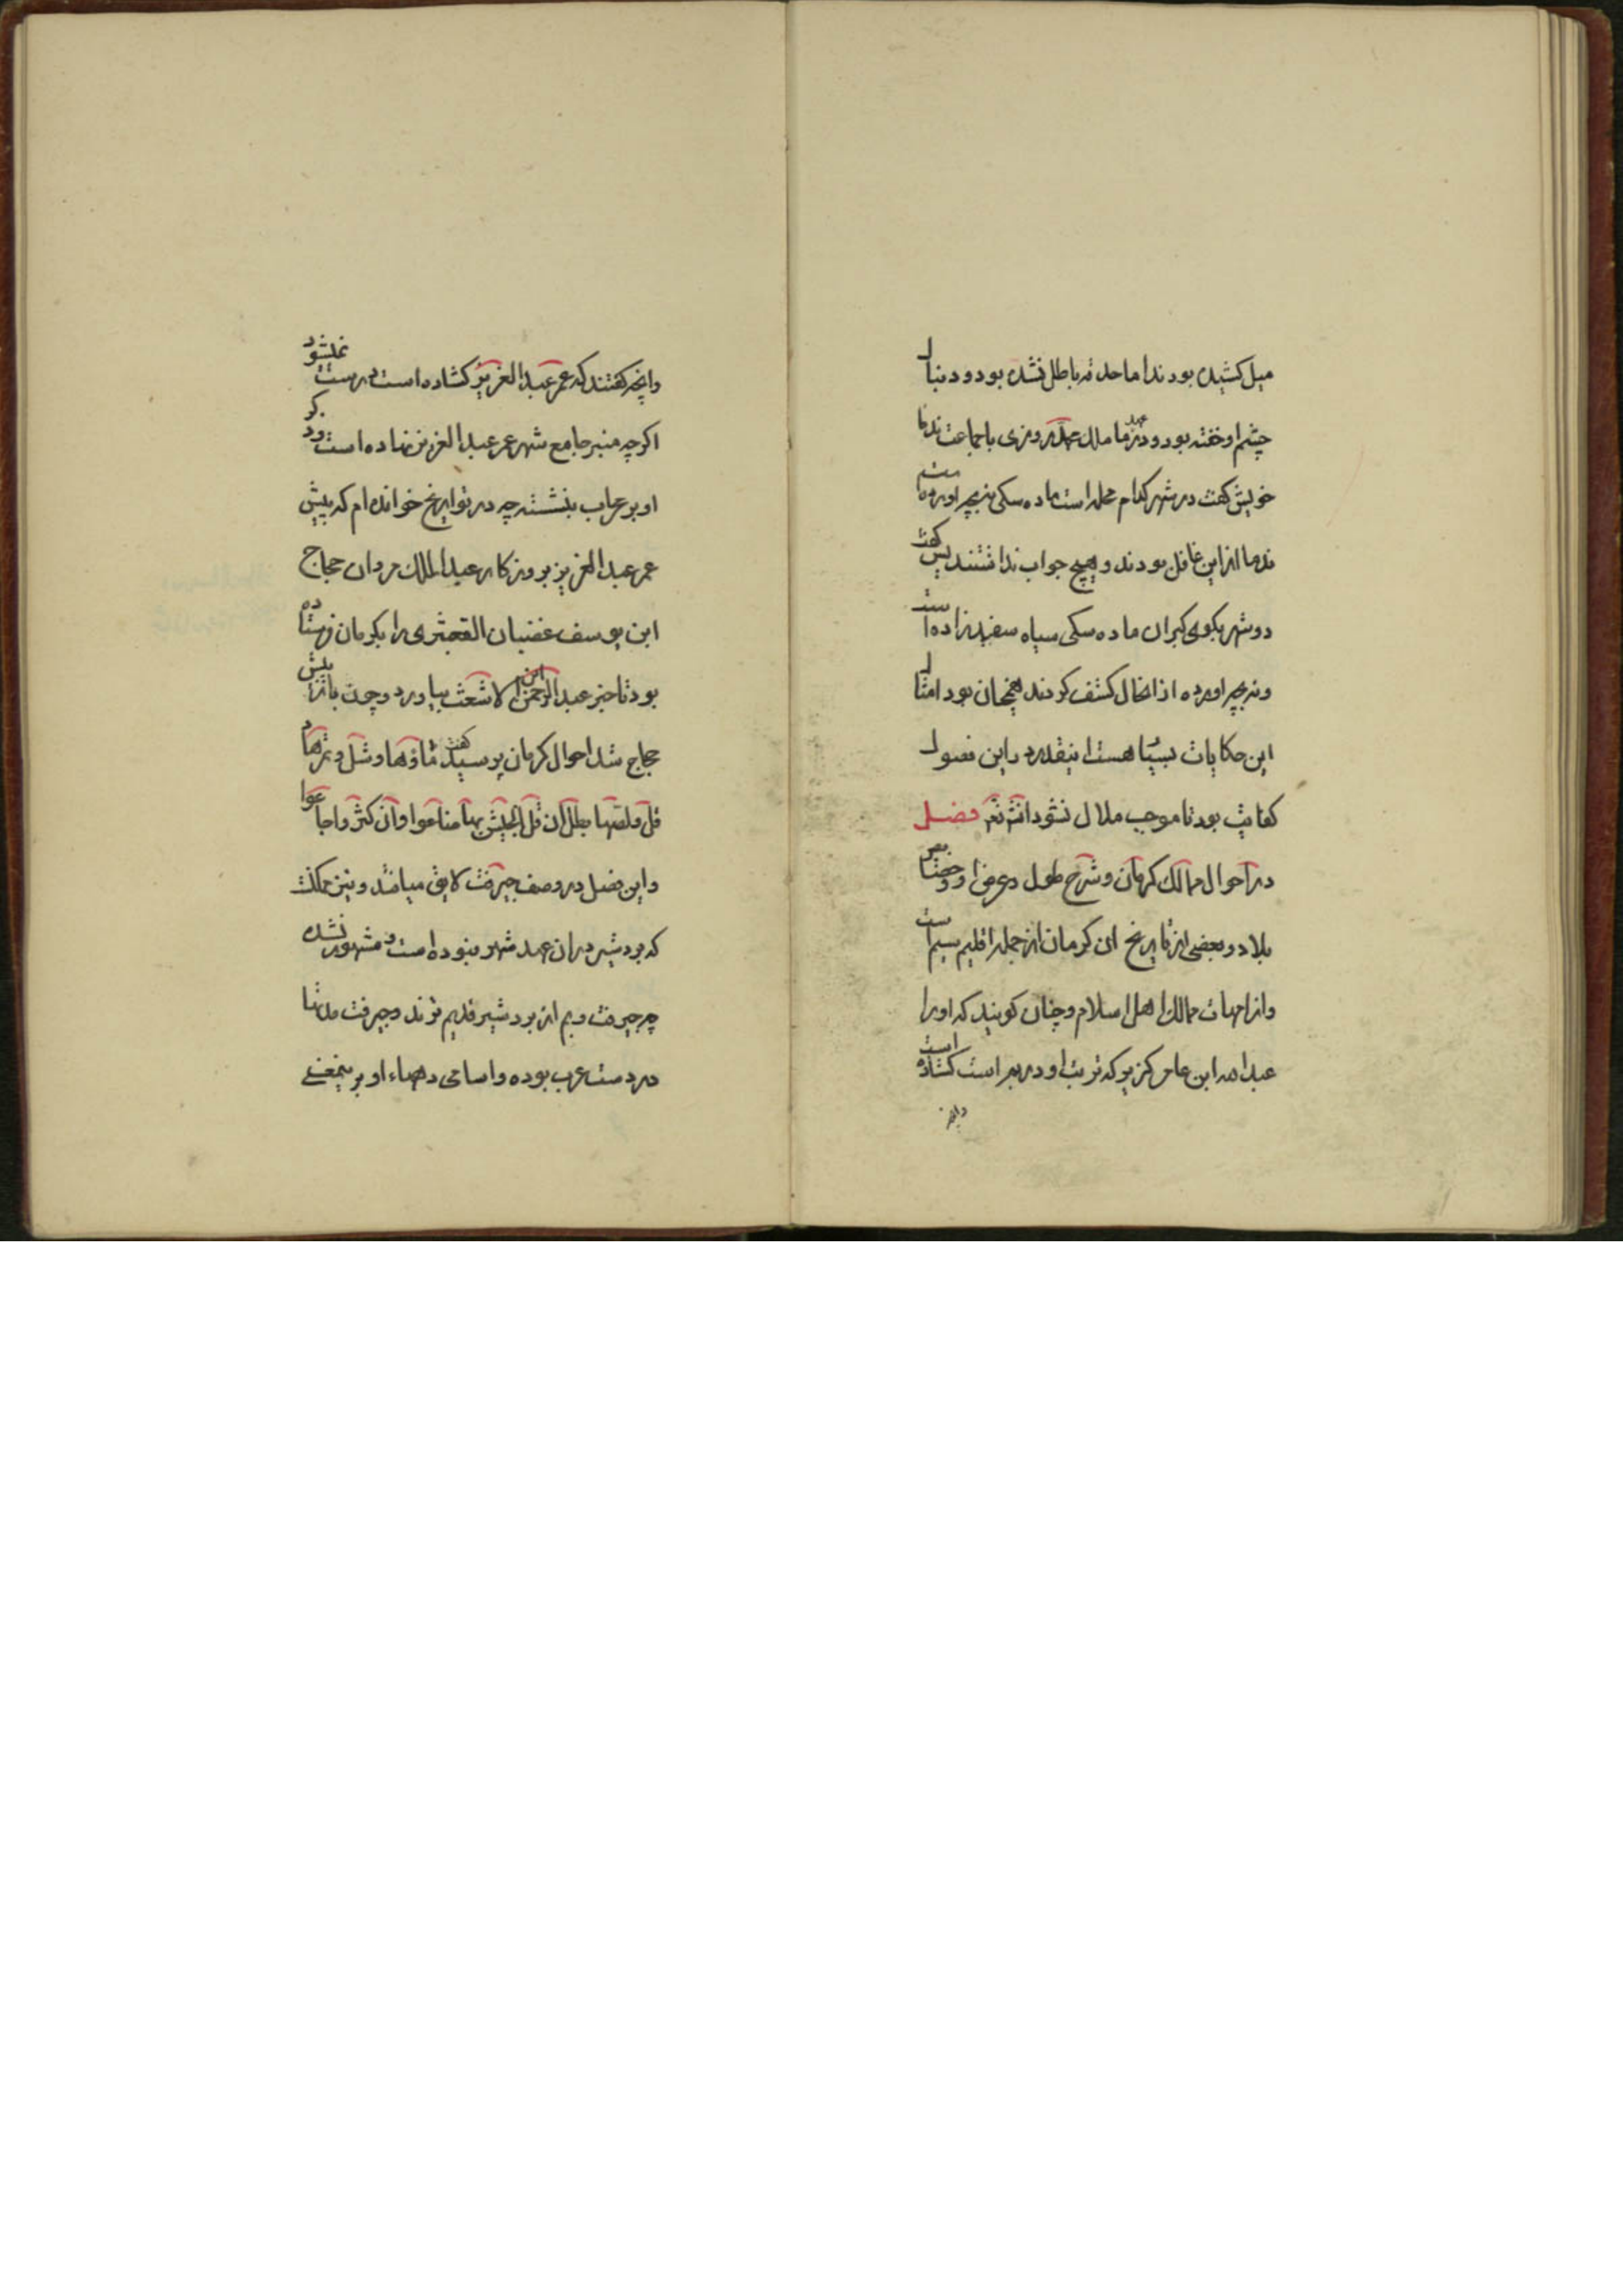 میل کشیده بودند اما حدقه باطل نشده بود و دنبال
چشم او خفته بود و در عهد ما ملک روزی با جماعت ندما
خویش گفت در شهر کدام محله است ماده سکی بنه بچه اورده است
ندما از این غافل بودند و هیچ جواب نداشتند پس گفت
دوش بکوی کبران ماده سکی سیاه سفید زاده است
ونه بچه اورده از انحال کشف کردند همچنان بود امثال
این حکایات بسیا هست اینقدر در این فصول
کفایت بود تا موجب ملال نشود انشا فصل
در احوال ممالک کرمان و شرح طول و عرض او و
بلاد و بعضی از تاریخ ان کرمان از جمله اقلیم سیم است
واز امهات ممالک اهل اسلام و چنان کویند که اورا
عبدالله ابن عامر کریز که تربت او در است کشاده است
وانچه
وانچه کفتند که عمر عبدالعزیز کشاده است درست نمیشود
اکرچه منبر جامع شهر عمر عبدالعزیز نهاده است و در
او بر محراب بنشسته چه در تواریخ خوانده ام که پیش
عمر عبدالعزیز بروزکار عبدالملک مروان حجاج
ابن یوسف غضبان القبعثری را بکرمان فرستاده
بود تا خبر عبدالرحمن ابن الاشعث بیاورد و چون باز پیش
حجاج شد احوال کرمان پرسید گفت ماؤها وشل و تمرها
ان قل الجیش بها ضاعوا وان کثروا جاعوا
واین فصل در وصف جیرفت لایق میباشد و نیز ممکنت
که بردشیر در ان عهد شهر نبوده است و مشهور نشده
چه جیرفت و بم از بردشیر قدیم ترند و جیرفت مدتها
در دست عرب بوده و اسامی دهاء او بر